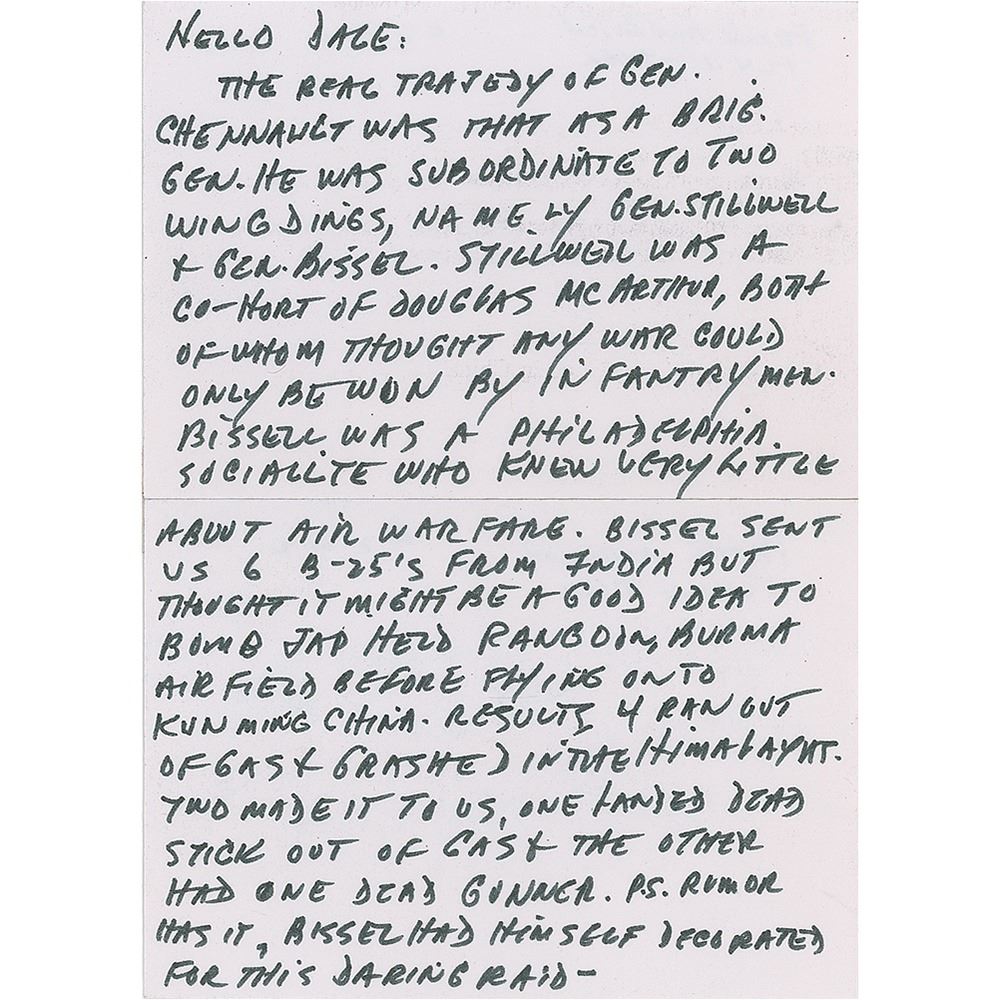 HELLO DALE:
THE REAL TRAJEDY OF GEN.
CHENNAULT WAS THAT AS A BRIG.
GEN. HE WAS SUBORDINATE TO TWO
WING DINGS, NAMELY GEN. STILLWELL
& GEN. BISSEL. STILLWELL WAS A
CO-HORT OF DOUGLAS MCARTHUR, BOTH
OF WHOM THOUGHT ANY WAR COULD
ONLY BE WON BY INFANTRYMEN.
BISSELL WAS A PHILADELPHIA
SOCIALLITE WHO KNEW VERY LITTLE
ABOUT AIR WARFARE. BISSEL SENT
US 6 B-25'S FROM INDIA BUT
THOUGHT IT MIGHT BE A GOOD IDEA TO
BOMB JAP HELD RANGOON, BURMA
AIRFIELD BEFORE FLYING ONTO
KUNMING CHINA. RESULTS 4 RAN OUT
OF GAS & CRASHED IN THE HIMALAYAS.
TWO MADE IT TO US, ONE LANDED DEAD
STICK OUT OF GAS & THE OTHER
HAD ONE DEAD GUNNER. P.S. RUMOR
HAS IT, BISSEL HAD HIMSELF DECORATED
FOR THIS DARING RAID-